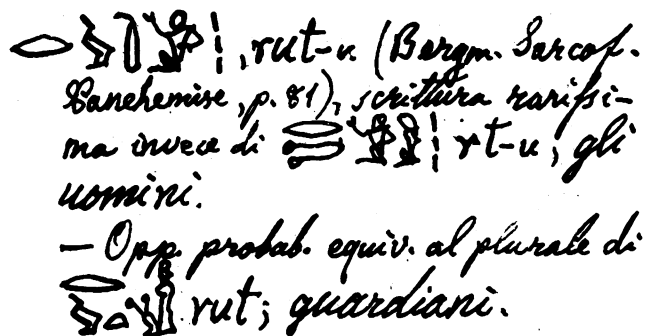 , rut-u (Bergm. Sarcof.
Panehemise, p. 81), scrittura rarissi-
ma invece di rt-u, gli
uomini.
— Opp. probab. equiv. al plurale di
rut; guardiani.